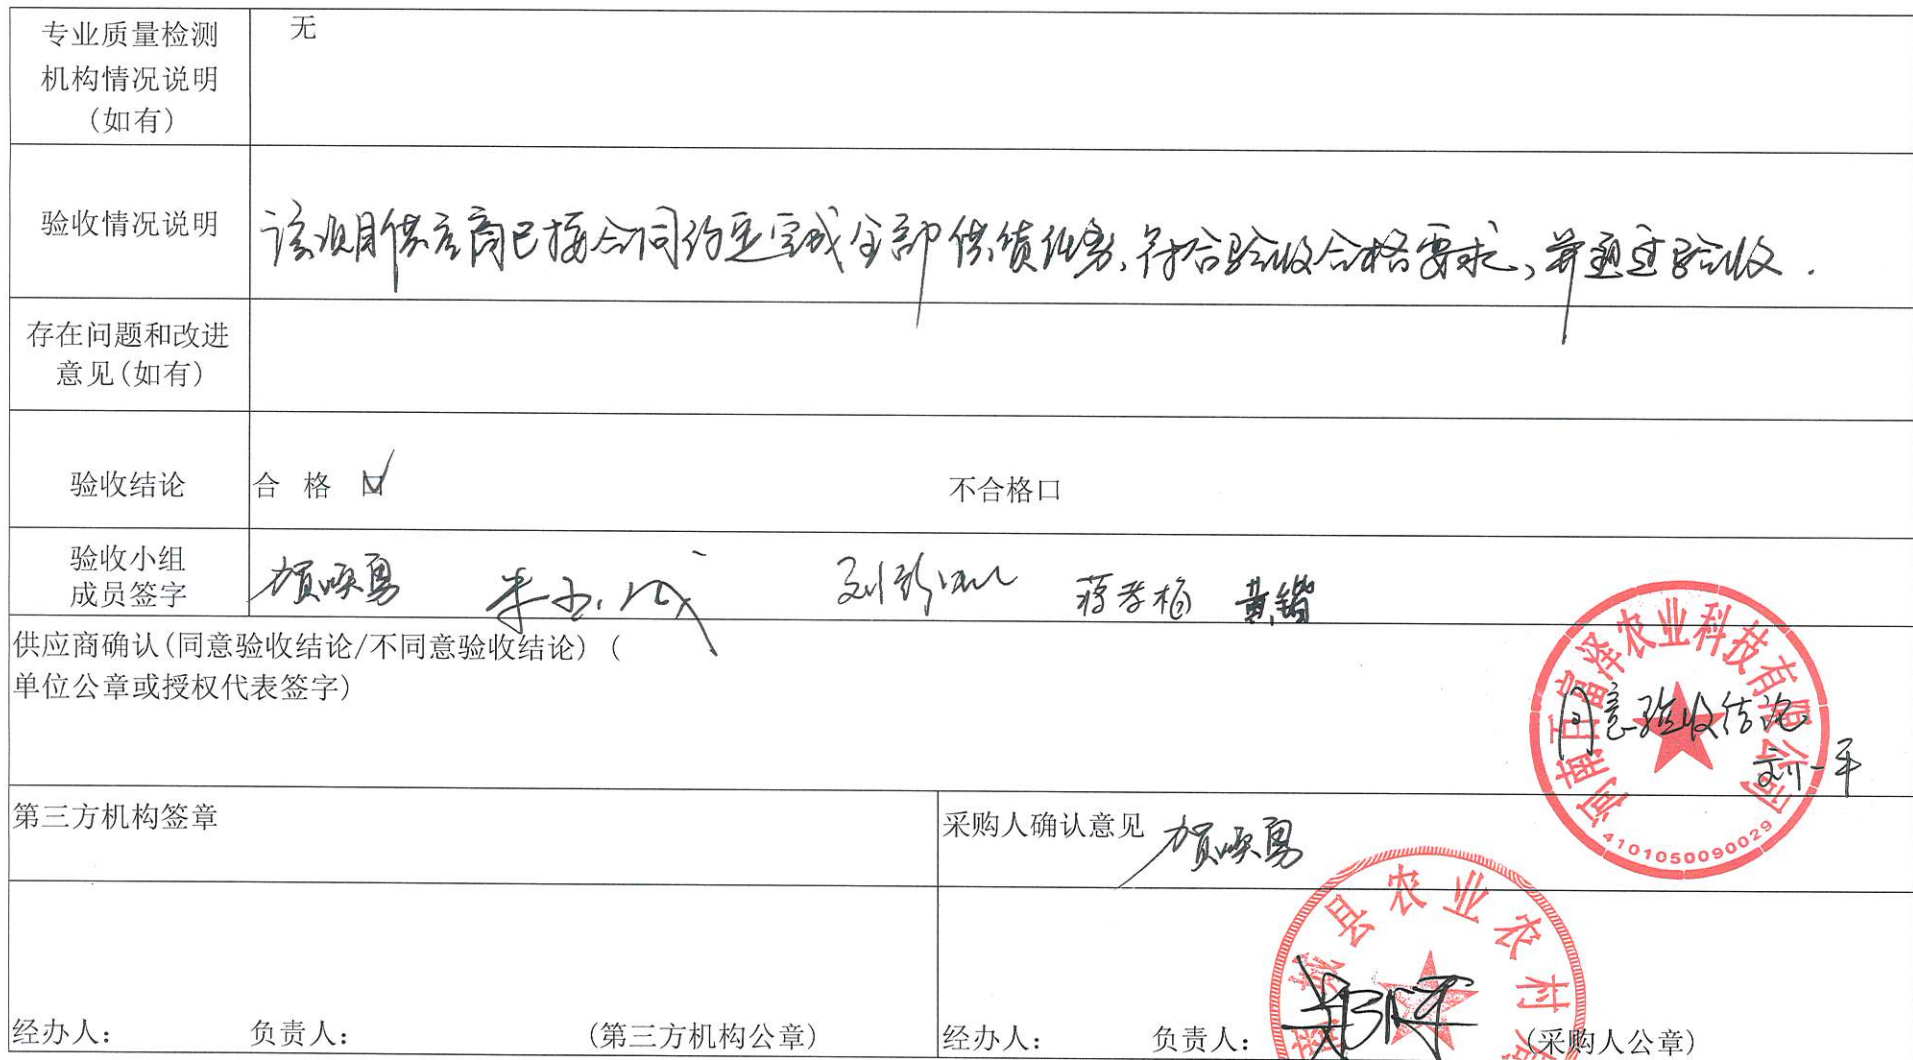 专业质量检测
机构情况说明
(如有)
无
验收情况说明
该项目供应商已按合同约定完成全部供货任务,符合验收合格要求,并通过验收.
存在问题和改进
意见(如有)
验收结论
合 格 口
不合格口
验收小组
成员签字
贺焕勇
蒋孝梅
供应商确认(同意验收结论/不同意验收结论) (
单位公章或授权代表签字)
河南百富泽农业科技有限公司
4101050090029
同意验收结论
刘一平
第三方机构签章
采购人确认意见
贺焕勇
县农业农村
经办人:
负责人:
(第三方机构公章)
经办人:
负责人:
(采购人公章)